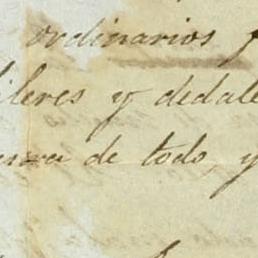 ordinarios y
ileres y dedale
de todo, y